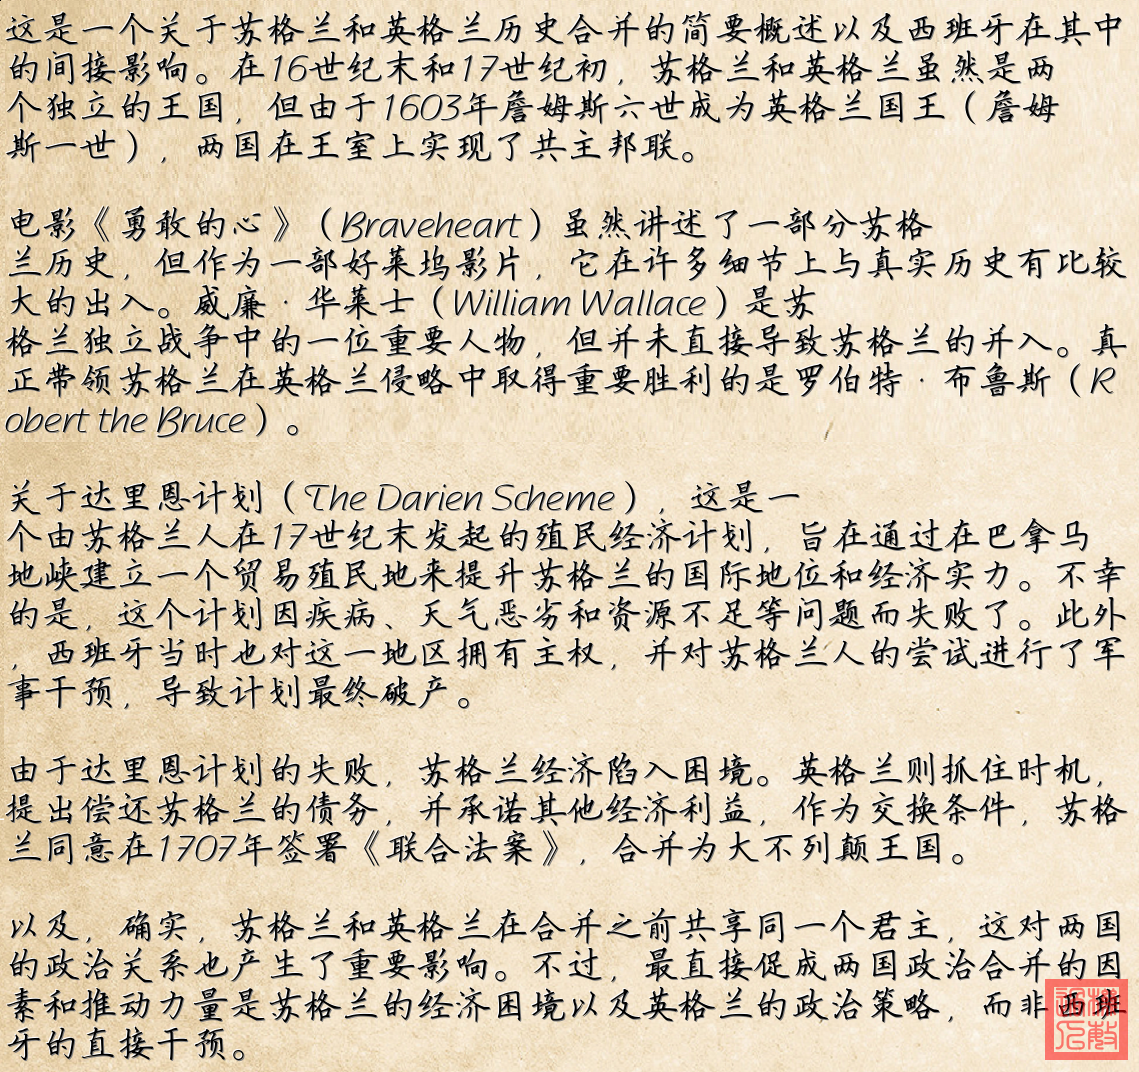 这是一个关于苏格兰和英格兰历史合并的简要概述以及西班牙在其中
的间接影响。在16世纪末和17世纪初，苏格兰和英格兰虽然是两
个独立的王国，但由于1603年詹姆斯六世成为英格兰国王（詹姆
斯一世），两国在王室上实现了共主邦联。
电影《勇敢的心》（Braveheart）虽然讲述了一部分苏格
兰历史，但作为一部好莱坞影片，它在许多细节上与真实历史有比较
大的出入。威廉·华莱士（William Wallace）是苏
格兰独立战争中的一位重要人物，但并未直接导致苏格兰的并入。真
正带领苏格兰在英格兰侵略中取得重要胜利的是罗伯特·布鲁斯（R
obert the Bruce）。
关于达里恩计划（The Darien Scheme），这是一
个由苏格兰人在17世纪末发起的殖民经济计划，旨在通过在巴拿马
地峡建立一个贸易殖民地来提升苏格兰的国际地位和经济实力。不幸
的是，这个计划因疾病、天气恶劣和资源不足等问题而失败了。此外
，西班牙当时也对这一地区拥有主权，并对苏格兰人的尝试进行了军
事干预，导致计划最终破产。
由于达里恩计划的失败，苏格兰经济陷入困境。英格兰则抓住时机，
提出偿还苏格兰的债务，并承诺其他经济利益，作为交换条件，苏格
兰同意在1707年签署《联合法案》，合并为大不列颠王国。
以及，确实，苏格兰和英格兰在合并之前共享同一个君主，这对两国
的政治关系也产生了重要影响。不过，最直接促成两国政治合并的因
素和推动力量是苏格兰的经济困境以及英格兰的政治策略，而非西班
牙的直接干预。